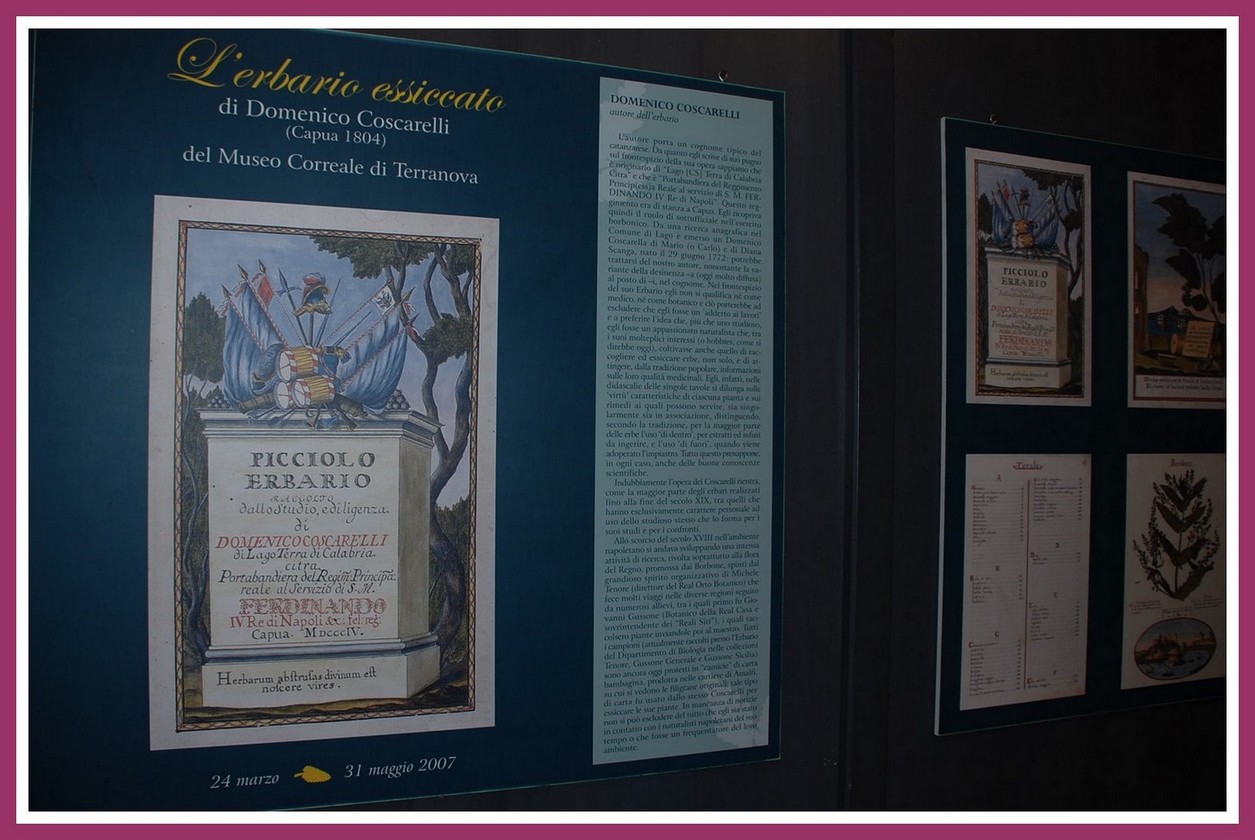 L'erbario essiccato
di Domenico Coscarelli
(Capua 1804)
del Museo Correale di Terranova
PICCIOLO
ERBARIO
RACCOLTO
dallo Studio, e diligenza
di
DOMENICO COSCARELLI
di Lago Terra di Calabria
citra
Portabandiera del Regim: Principa:
reale al Servizio di S. M.
FERDINANDO
IV. Re di Napoli &c: fel: reg:
Capua. MDCCCIV.
Herbarum abstrusas divinum est
noscere vires.
24 marzo 31 maggio 2007
DOMENICO COSCARELLI
autore dell'erbario
L'autore porta un cognome tipico del
catanzarese. Da quanto egli scrive di suo pugno
sul frontespizio della sua opera sappiamo che
è originario di "Lago [CS] Terra di Calabria
Citra" e che è "Portabandiera del Reggimento
Princip(ess)a Reale al servizio di S. M. FER-
DINANDO IV Re di Napoli". Questo reg-
gimento era di stanza a Capua. Egli ricopriva
quindi il ruolo di sottufficiale nell'esercito
borbonico. Da una ricerca anagrafica nel
Comune di Lago è emerso un Domenico
Coscarella di Mario (o Carlo) e di Diana
Scanga, nato il 29 giugno 1772: potrebbe
trattarsi del nostro autore, nonostante la va-
riante della desinenza –a (oggi molto diffusa)
al posto di –i, nel cognome. Nel frontespizio
del suo Erbario egli non si qualifica né come
medico, né come botanico e ciò porterebbe ad
escludere che egli fosse un 'addetto ai lavori'
e a preferire l'idea che, più che uno studioso,
egli fosse un appassionato naturalista che, tra
i suoi molteplici interessi (o hobbies, come si
direbbe oggi), coltivasse anche quello di rac-
cogliere ed essiccare erbe, non solo, e di at-
tingere, dalla tradizione popolare, informazioni
sulle loro qualità medicinali. Egli, infatti, nelle
didascalie delle singole tavole si dilunga sulle
'virtù' caratteristiche di ciascuna pianta e sui
rimedi ai quali possono servire, sia singo-
larmente sia in associazione, distinguendo,
secondo la tradizione, per la maggior parte
delle erbe l'uso 'di dentro', per estratti ed infusi
da ingerire, e l'uso 'di fuori', quando viene
adoperato l'impiastro. Tutto questo presuppone,
in ogni caso, anche delle buone conoscenze
scientifiche.
Indubbiamente l'opera del Coscarelli rientra,
come la maggior parte degli erbari realizzati
fino alla fine del secolo XIX, tra quelli che
hanno esclusivamente carattere personale ad
uso dello studioso stesso che lo forma per i
suoi studi e per i confronti.
Allo scorcio del secolo XVIII nell'ambiente
napoletano si andava sviluppando una intensa
attività di ricerca, rivolta soprattutto alla flora
del Regno, promossa dai Borbone, spinti dal
grandioso spirito organizzativo di Michele
Tenore (direttore del Real Orto Botanico) che
fece molti viaggi nelle diverse regioni seguito
da numerosi allievi, tra i quali primo fu Gio-
vanni Gussone (Botanico della Real Casa e
sovrintendente dei "Reali Siti"), i quali rac-
colsero piante inviandole poi al maestro. Tutti
i campioni (attualmente raccolti presso l'Erbario
del Dipartimento di Biologia nelle collezioni
Tenore, Gussone Generale e Gussone Sicilia)
sono ancora oggi protetti in "camicie" di carta
bambagina, prodotta nelle cartiere di Amalfi,
su cui si vedono le filigrane originali: tale tipo
di carta fu usato dallo stesso Coscarelli per
essiccare le sue piante. In mancanza di notizie
non si può escludere del tutto che egli sia stato
in contatto con i naturalisti napoletani del suo
tempo o che fosse un frequentatore del loro
ambiente.
PICCIOLO
ERBARIO
DOMENICO COSCARELLI
FERDINANDO
Herbarum abstrusas divinum est
noscere vires.
Tavola
A
B
C